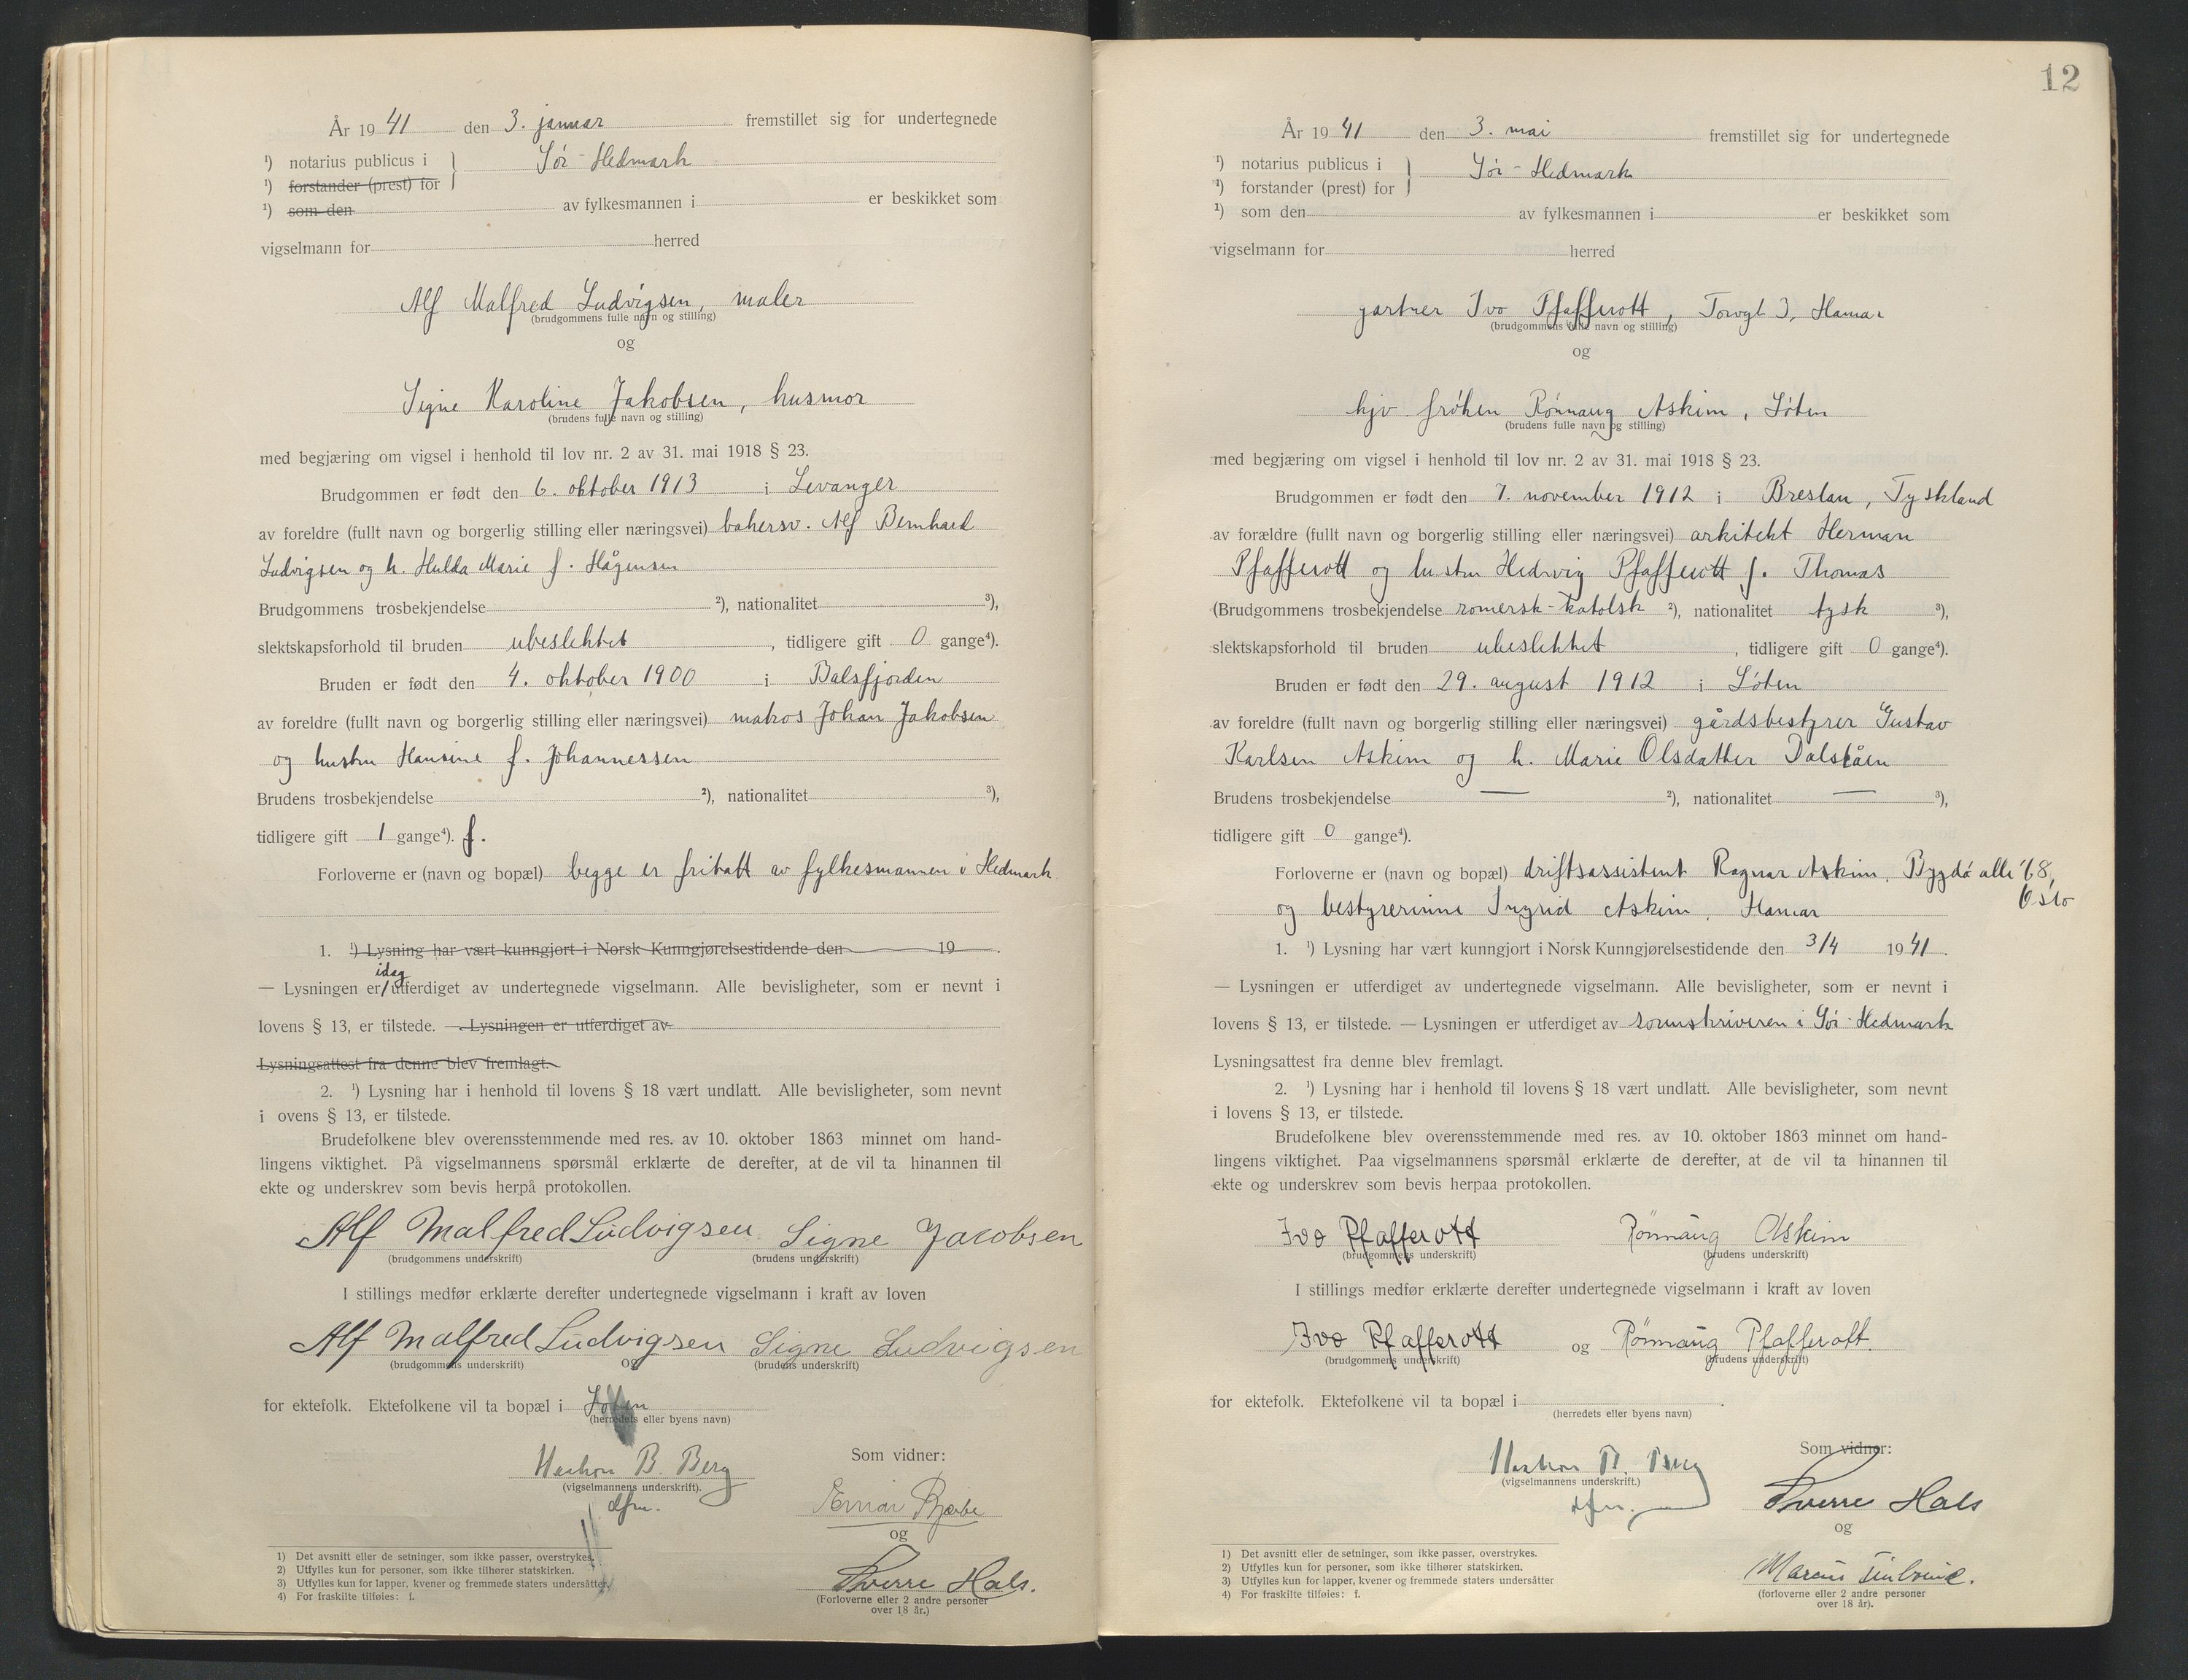 År 1941 den 3. januar fremstillet sig for undertegnede
¹) notarius publicus i } Sör-Hedmark
¹) forstander (prest) for
¹) som den av fylkesmannen i er beskikket som
vigselmann for herred
Alf Malfred Ludvigsen, maler
(brudgommens fulle navn og stilling)
og
Signe Karoline Jakobsen, husmor
(brudens fulle navn og stilling)
med begjæring om vigsel i henhold til lov nr. 2 av 31. mai 1918 § 23.
Brudgommen er født den 6. oktober 1913 i Levanger
av foreldre (fullt navn og borgerlig stilling eller næringsvei) bakersv. Alf Bernhard
Ludvigsen og h. Hulda Marie f. Hågensen
Brudgommens trosbekjendelse ²), nationalitet ³),
slektskapsforhold til bruden ubeslektet, tidligere gift 0 gange⁴).
Bruden er født den 4. oktober 1900 i Balsfjorden
av foreldre (fullt navn og borgerlig stilling eller næringsvei) matros Johan Jakobsen
og hustru Hansine f. Johannessen
Brudens trosbekjendelse ²), nationalitet ³),
tidligere gift 1 gange⁴). f.
Forloverne er (navn og bopæl) begge er fritatt av fylkesmannen i Hedmark
1. ¹) Lysning har vært kunngjort i Norsk Kunngjørelsestidende den 19 .
idag
— Lysningen er/utferdiget av undertegnede vigselmann. Alle bevisligheter, som er nevnt i
lovens § 13, er tilstede. — Lysningen er utferdiget av
Lysningsattest fra denne blev fremlagt.
2. ¹) Lysning har i henhold til lovens § 18 vært undlatt. Alle bevisligheter, som nevnt
i ovens § 13, er tilstede.
Brudefolkene blev overensstemmende med res. av 10. oktober 1863 minnet om hand-
lingens viktighet. På vigselmannens spørsmål erklærte de derefter, at de vil ta hinannen til
ekte og underskrev som bevis herpå protokollen.
Alf Malfred Ludvigsen Signe Jacobsen
(brudgommens underskrift) (brudens underskrift)
I stillings medfør erklærte derefter undertegnede vigselmann i kraft av loven
Alf Malfred Ludvigsen Signe Ludvigsen
(brudgommens underskrift) og (brudens underskrift)
for ektefolk. Ektefolkene vil ta bopæl i Löten
(herredets eller byens navn)
Haakon B. Berg Som vidner:
(vigselmannens underskrift).
dfm.
og
Sverre Hals.
(Forloverne eller 2 andre personer
over 18 år.)
1) Det avsnitt eller de setninger, som ikke passer, overstrykes.
2) Utfylles kun for personer, som ikke tilhører statskirken.
3) Utfylles kun for lapper, kvener og fremmede staters undersåtter.
4) For fraskilte tilføies: f.
12
År 1941 den 3. mai fremstillet sig for undertegnede
¹) notarius publicus i } Sör-Hedmark
¹) forstander (prest) for
¹) som den av fylkesmannen i er beskikket som
vigselmann for herred
gartner Ivo Pfafferott, Torvgt 3, Hamar
(brudgommens fulle navn og stilling)
og
hjv. fröken Rönnaug Askim, Löten
(brudens fulle navn og stilling)
med begjæring om vigsel i henhold til lov nr. 2 av 31. mai 1918 § 23.
Brudgommen er født den 7. november 1912 i Breslau, Tyskland
av forældre (fullt navn og borgerlig stilling eller næringsvei) arkitekt Herman
Pfafferott og hustru Hedwig Pfafferott f. Thomas
(Brudgommens trosbekjendelse romersk-katolsk ²), nationalitet tysk ³),
slektskapsforhold til bruden ubeslektet, tidligere gift 0 gange⁴).
Bruden er født den 29. august 1912 i Löten
av foreldre (fullt navn og borgerlig stilling eller næringsvei) gårdsbestyrer Gustav
Karlsen Askim og h. Marie Olsdatter
Brudens trosbekjendelse — ²), nationalitet — ³),
tidligere gift 0 gange⁴).
Forloverne er (navn og bopæl) driftsassistent Ragnar Askim, Bygdö alle 68,
Oslo
og bestyrerinne Ingrid Askim, Hamar
1. ¹) Lysning har vært kunngjort i Norsk Kunngjørelsestidende den 3/4 1941.
— Lysningen er utferdiget av undertegnede vigselmann. Alle bevisligheter, som er nevnt i
lovens § 13, er tilstede. — Lysningen er utferdiget av sorenskriveren i Sör-Hedmark
Lysningsattest fra denne blev fremlagt.
2. ¹) Lysning har i henhold til lovens § 18 vært undlatt. Alle bevisligheter, som nevnt
i lovens § 13, er tilstede.
Brudefolkene blev overensstemmende med res. av 10. oktober 1863 minnet om hand-
lingens viktighet. Paa vigselmannens spørsmål erklærte de derefter, at de vil ta hinannen til
ekte og underskrev som bevis herpaa protokollen.
Ivo Pfafferott Rönnaug Askim
(brudgommens underskrift) (brudens underskrift)
I stillings medfør erklærte derefter undertegnede vigselmann i kraft av loven
Ivo Pfafferott og Rönnaug Pfafferott.
(brudgommens underskrift) (brudens underskrift)
for ektefolk. Ektefolkene vil ta bopæl i .
(herredets eller byens navn)
Haakon B. Berg Som vidner:
(vigselmannens underskrift.)
dfm. Sverre Hals
og
Marcus
(forloverne eller 2 andre personer
over 18 år).
1) Det avsnitt eller de setninger, som ikke passer, overstrykes.
2) Utfylles kun for personer, som ikke tilhører statskirken.
3) Utfylles kun for lapper, kvener og fremmede staters undersåtter
4) For fraskilte tilføies: f.